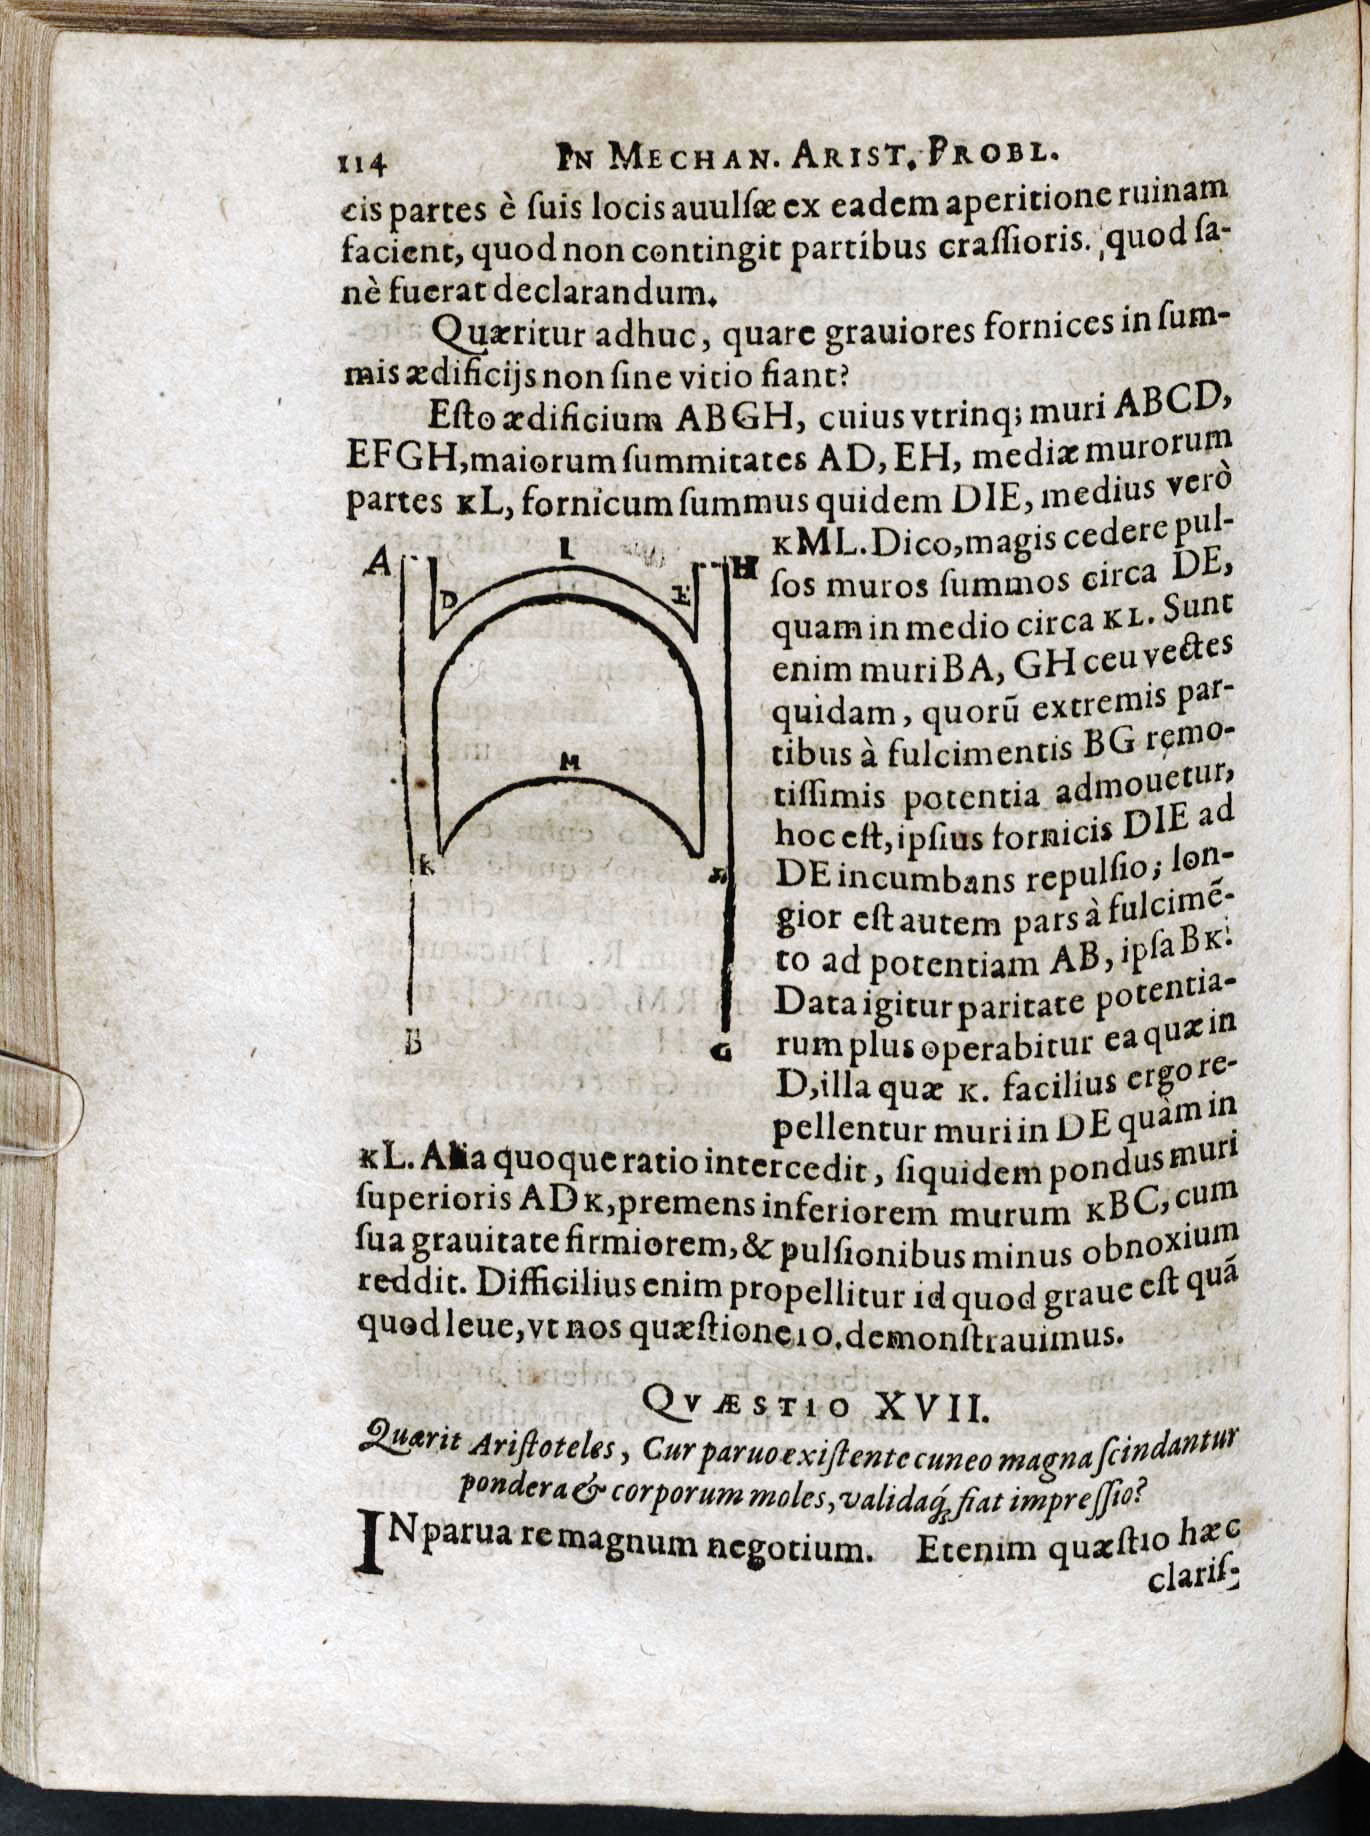 114 IN MECHAN. ARIST. PROBL.
cis partes è ſuis locis auulſæ ex eadem aperitione ruinam
facient, quod non contingit partibus craſſioris. quod ſa-
nè fuerat declarandum.
Quæritur adhuc, quare grauiores fornices in ſum-
mis ædificijs non ſine vitio fiant?
Eſto ædificium ABGH, cuius vtrinq; muri ABCD,
EFGH, maiorum ſummitates AD, EH, mediæ murorum
partes KL, fornicum ſummus quidem DIE, medius verò
KML. Dico, magis cedere pul-
ſos muros ſummos circa DE,
quam in medio circa KL. Sunt
enim muri BA, GH ceu vectes
quidam, quorũ extremis par-
tibus à fulcimentis BG remo-
tiſſimis potentia admouetur,
hoc eſt, ipſius fornicis DIE ad
DE incumbans repulſio; lon-
gior eſt autem pars à fulcimẽ-
to ad potentiam AB, ipſa BK.
Data igitur paritate potentia-
rum plus operabitur ea quæ in
D, illa quæ K. facilius ergo re-
pellentur muri in DE quàm in
A
I
H
D
E
M
K
B
G
KL. Alia quoque ratio intercedit, ſiquidem pondus muri
ſuperioris ADK, premens inferiorem murum KBC, cum
ſua grauitate firmiorem, & pulſionibus minus obnoxium
reddit. Difficilius enim propellitur id quod graue eſt quã
quod leue, vt nos quæſtione 10. demonſtrauimus.
QVÆSTIO XVII.
Quærit Ariſtoteles, Cur paruo exiſtente cuneo magna ſcindantur
pondera & corporum moles, validaq́; fiat impreſſio?
IN parua re magnum negotium. Etenim quæſtio hæc
clariſ-